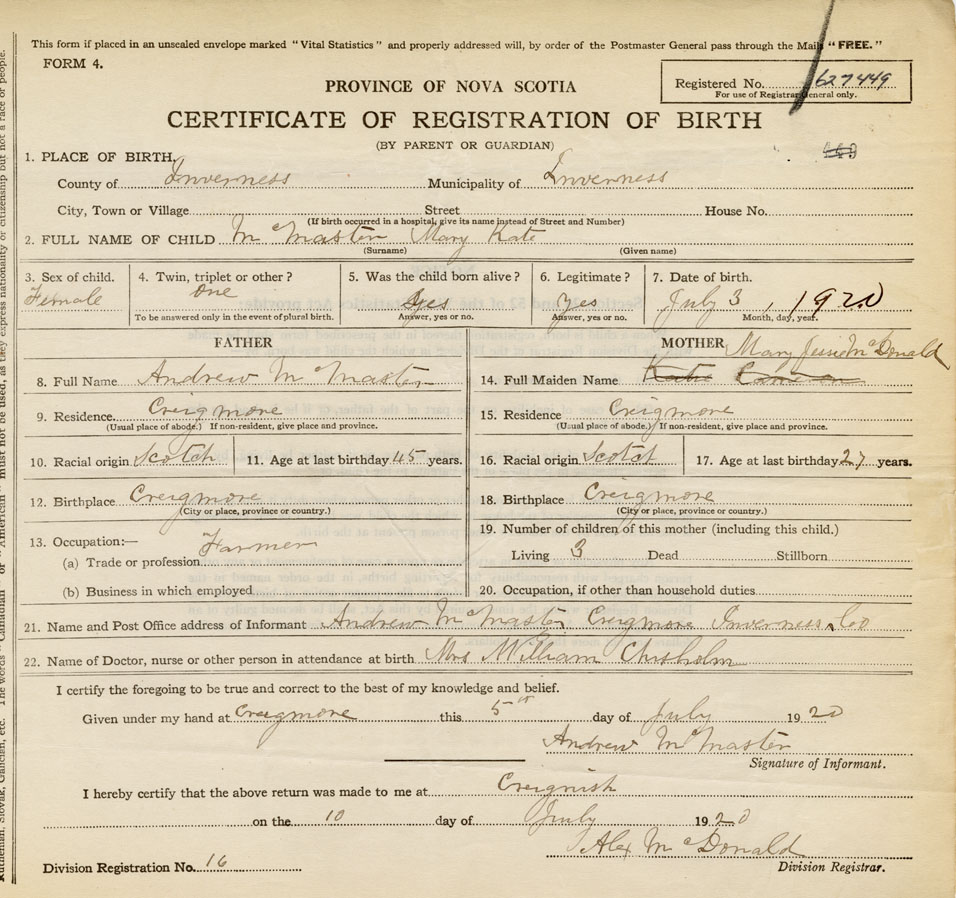 This form if placed in an unsealed envelope marked "Vital Statistics" and properly addressed will, by order of the Postmaster General pass through the Mails "FREE."
FORM 4.
Registered No. 627449
For use of Registrar General only.
PROVINCE OF NOVA SCOTIA
CERTIFICATE OF REGISTRATION OF BIRTH
(BY PARENT OR GUARDIAN)
1. PLACE OF BIRTH,
County of Inverness Municipality of Inverness
City, Town or Village Street House No.
(If birth occurred in a hospital, give its name instead of Street and Number)
2. FULL NAME OF CHILD McMaster Mary Kate
(Surname) (Given name)
3. Sex of child. 4. Twin, triplet or other? 5. Was the child born alive? 6. Legitimate? 7. Date of birth.
Female one Yes Yes July 3, 1920
To be answered only in the event of plural birth. Answer, yes or no. Answer, yes or no. Month, day, year.
FATHER
8. Full Name Andrew McMaster
9. Residence Creigmore
(Usual place of abode.) If non-resident, give place and province.
10. Racial origin Scotch 11. Age at last birthday 45 years.
12. Birthplace Creigmore
(City or place, province or country.)
13. Occupation:— Farmer
(a) Trade or profession
(b) Business in which employed
MOTHER Mary Jessie McDonald
14. Full Maiden Name Katie Cameron
15. Residence Creigmore
(Usual place of abode.) If non-resident, give place and province.
16. Racial origin Scotch 17. Age at last birthday 27 years.
18. Birthplace Creigmore
(City or place, province or country.)
19. Number of children of this mother (including this child.)
Living 3 Dead Stillborn
20. Occupation, if other than household duties
21. Name and Post Office address of Informant Andrew McMaster Creigmore Inverness Co
22. Name of Doctor, nurse or other person in attendance at birth Mrs William Chisholm
I certify the foregoing to be true and correct to the best of my knowledge and belief.
Given under my hand at Creigmore this 5th day of July 1920
Andrew McMaster
Signature of Informant.
I hereby certify that the above return was made to me at Creignish
on the 10 day of July 1920
Alex McDonald
Division Registration No. 16 Division Registrar.